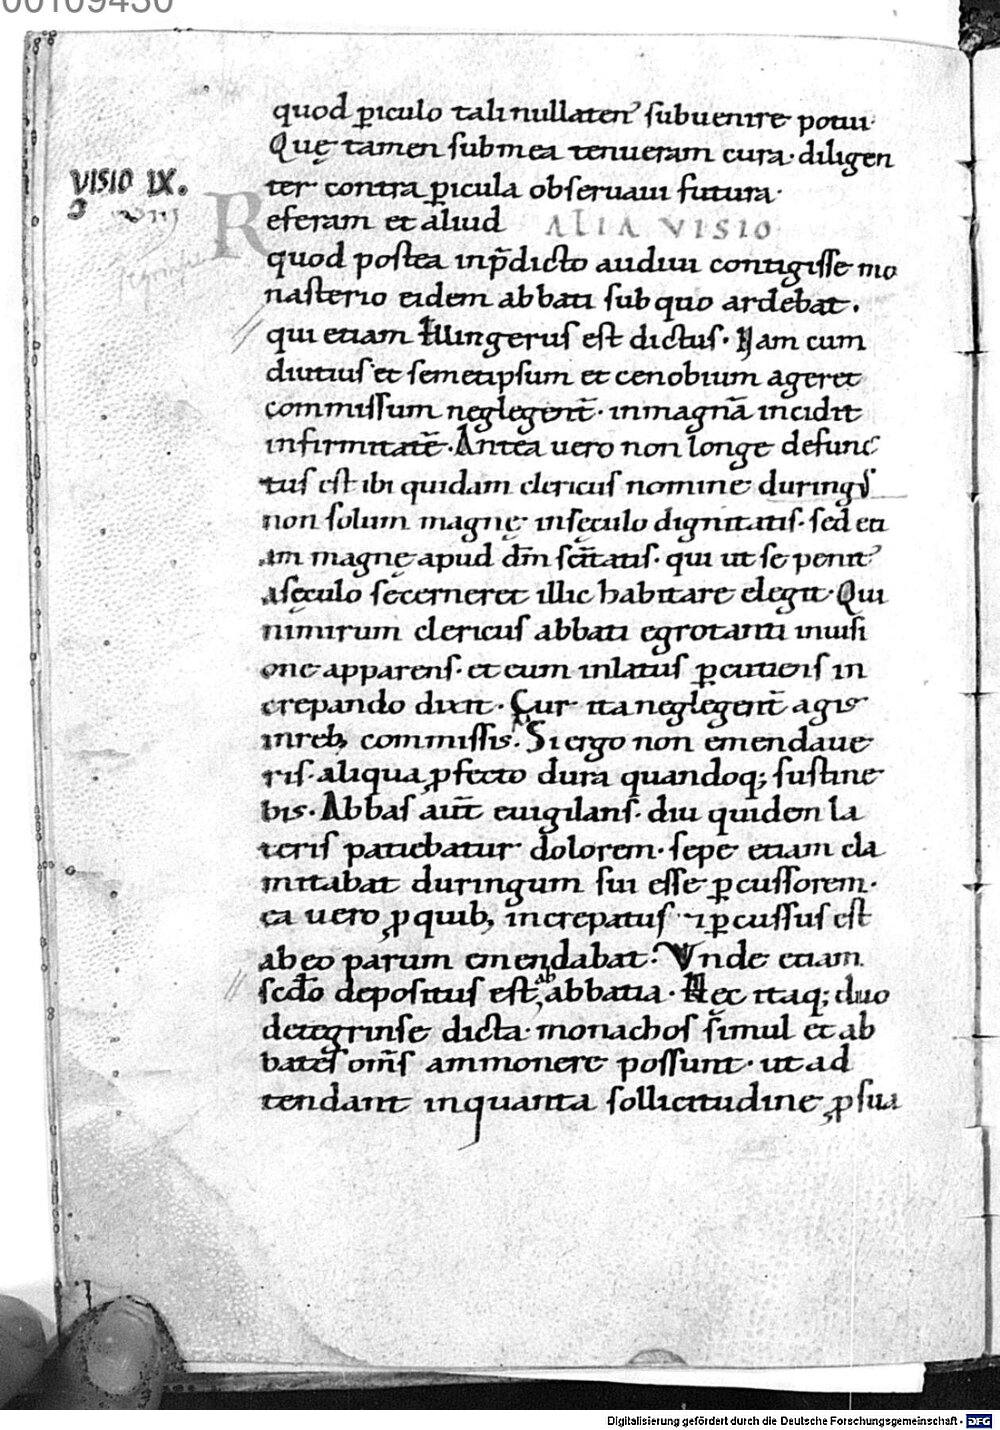 00109430
quod ꝑiculo tali nullaten᾿ subuenire potui·
Quę tamen sub mea tenueram cura· diligen
VISIO IX.
ter contra ꝑicula obseruaui futura·
Referam et aliud ALIA VISIO
quod postea in p̄dicto audiui contigisse mo
nasterio eidem abbati sub quo ardebat.
qui etiam Ellingerus est dictus· Nam cum
diutius et semetipsum et cenobium ageret
commissum neglegent̄· in magnā incidit
infirmitatē· Antea uero non longe defunc
tus est ibi quidam clericus nomine during᾿
non solum magnę in sęculo dignitatis· sed eti
am magnę apud dm̄ sc̄itatis· qui ut se penit᾿
a sęculo secerneret illic habitare elegit· Qui
nimirum clericus abbati egrotanti in uisi
one apparens· et eum in latus ꝑcutiens in
crepando dixit· Cur ita neglegent̄ agis
in reb; commissis. Si ergo non emendaue
ris· aliqua ꝓfecto dura quandoq; sustine
bis· Abbas aut̄ euigilans· diu quidem la
teris patiebatur dolorem· sepe etiam cla
mitabat duringum sui esse ꝑcussorem·
ea uero ꝓ quib; increpatus ⁊ ꝑcussus est
ab eo parum emendabat· Unde etiam
scd̄o depositus est, ab abbatia· Hęc itaq; duo
de tegrinse dicta· monachos simul et ab
bates om̄s ammonere possunt· ut ad
tendant in quanta sollicitudine ꝓ sua
Digitalisierung gefördert durch die Deutsche Forschungsgemeinschaft - DFG